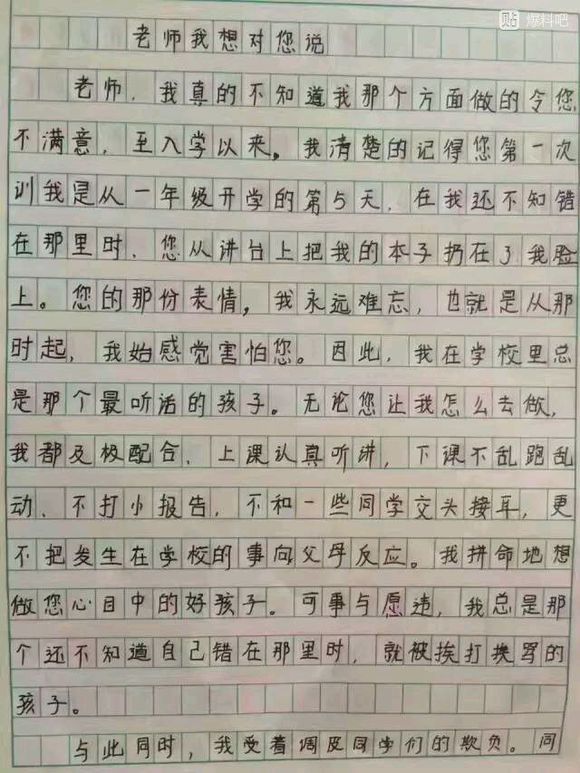 贴 爆料吧
老师我想对您说
老师，我真的不知道我那个方面做的令您
不满意，至入学以来。我清楚的记得您第一次
训我是从一年级开学的第5天，在我还不知错
在那里时，您从讲台上把我的本子扔在了我脸
上。您的那份表情，我永远难忘，也就是从那
时起，我始感觉害怕您。因此，我在学校里总
是那个最听话的孩子。无论您让我怎么去做，
我都及极配合，上课认真听讲，下课不乱跑乱
动，不打小报告，不和一些同学交头接耳，更
不把发生在学校的事向父母反应。我拼命地想
做您心目中的好孩子。可事与愿违，我总是那
个还不知道自己错在那里时，就被挨打挨骂的
孩子。
与此同时，我受着调皮同学们的欺负。同